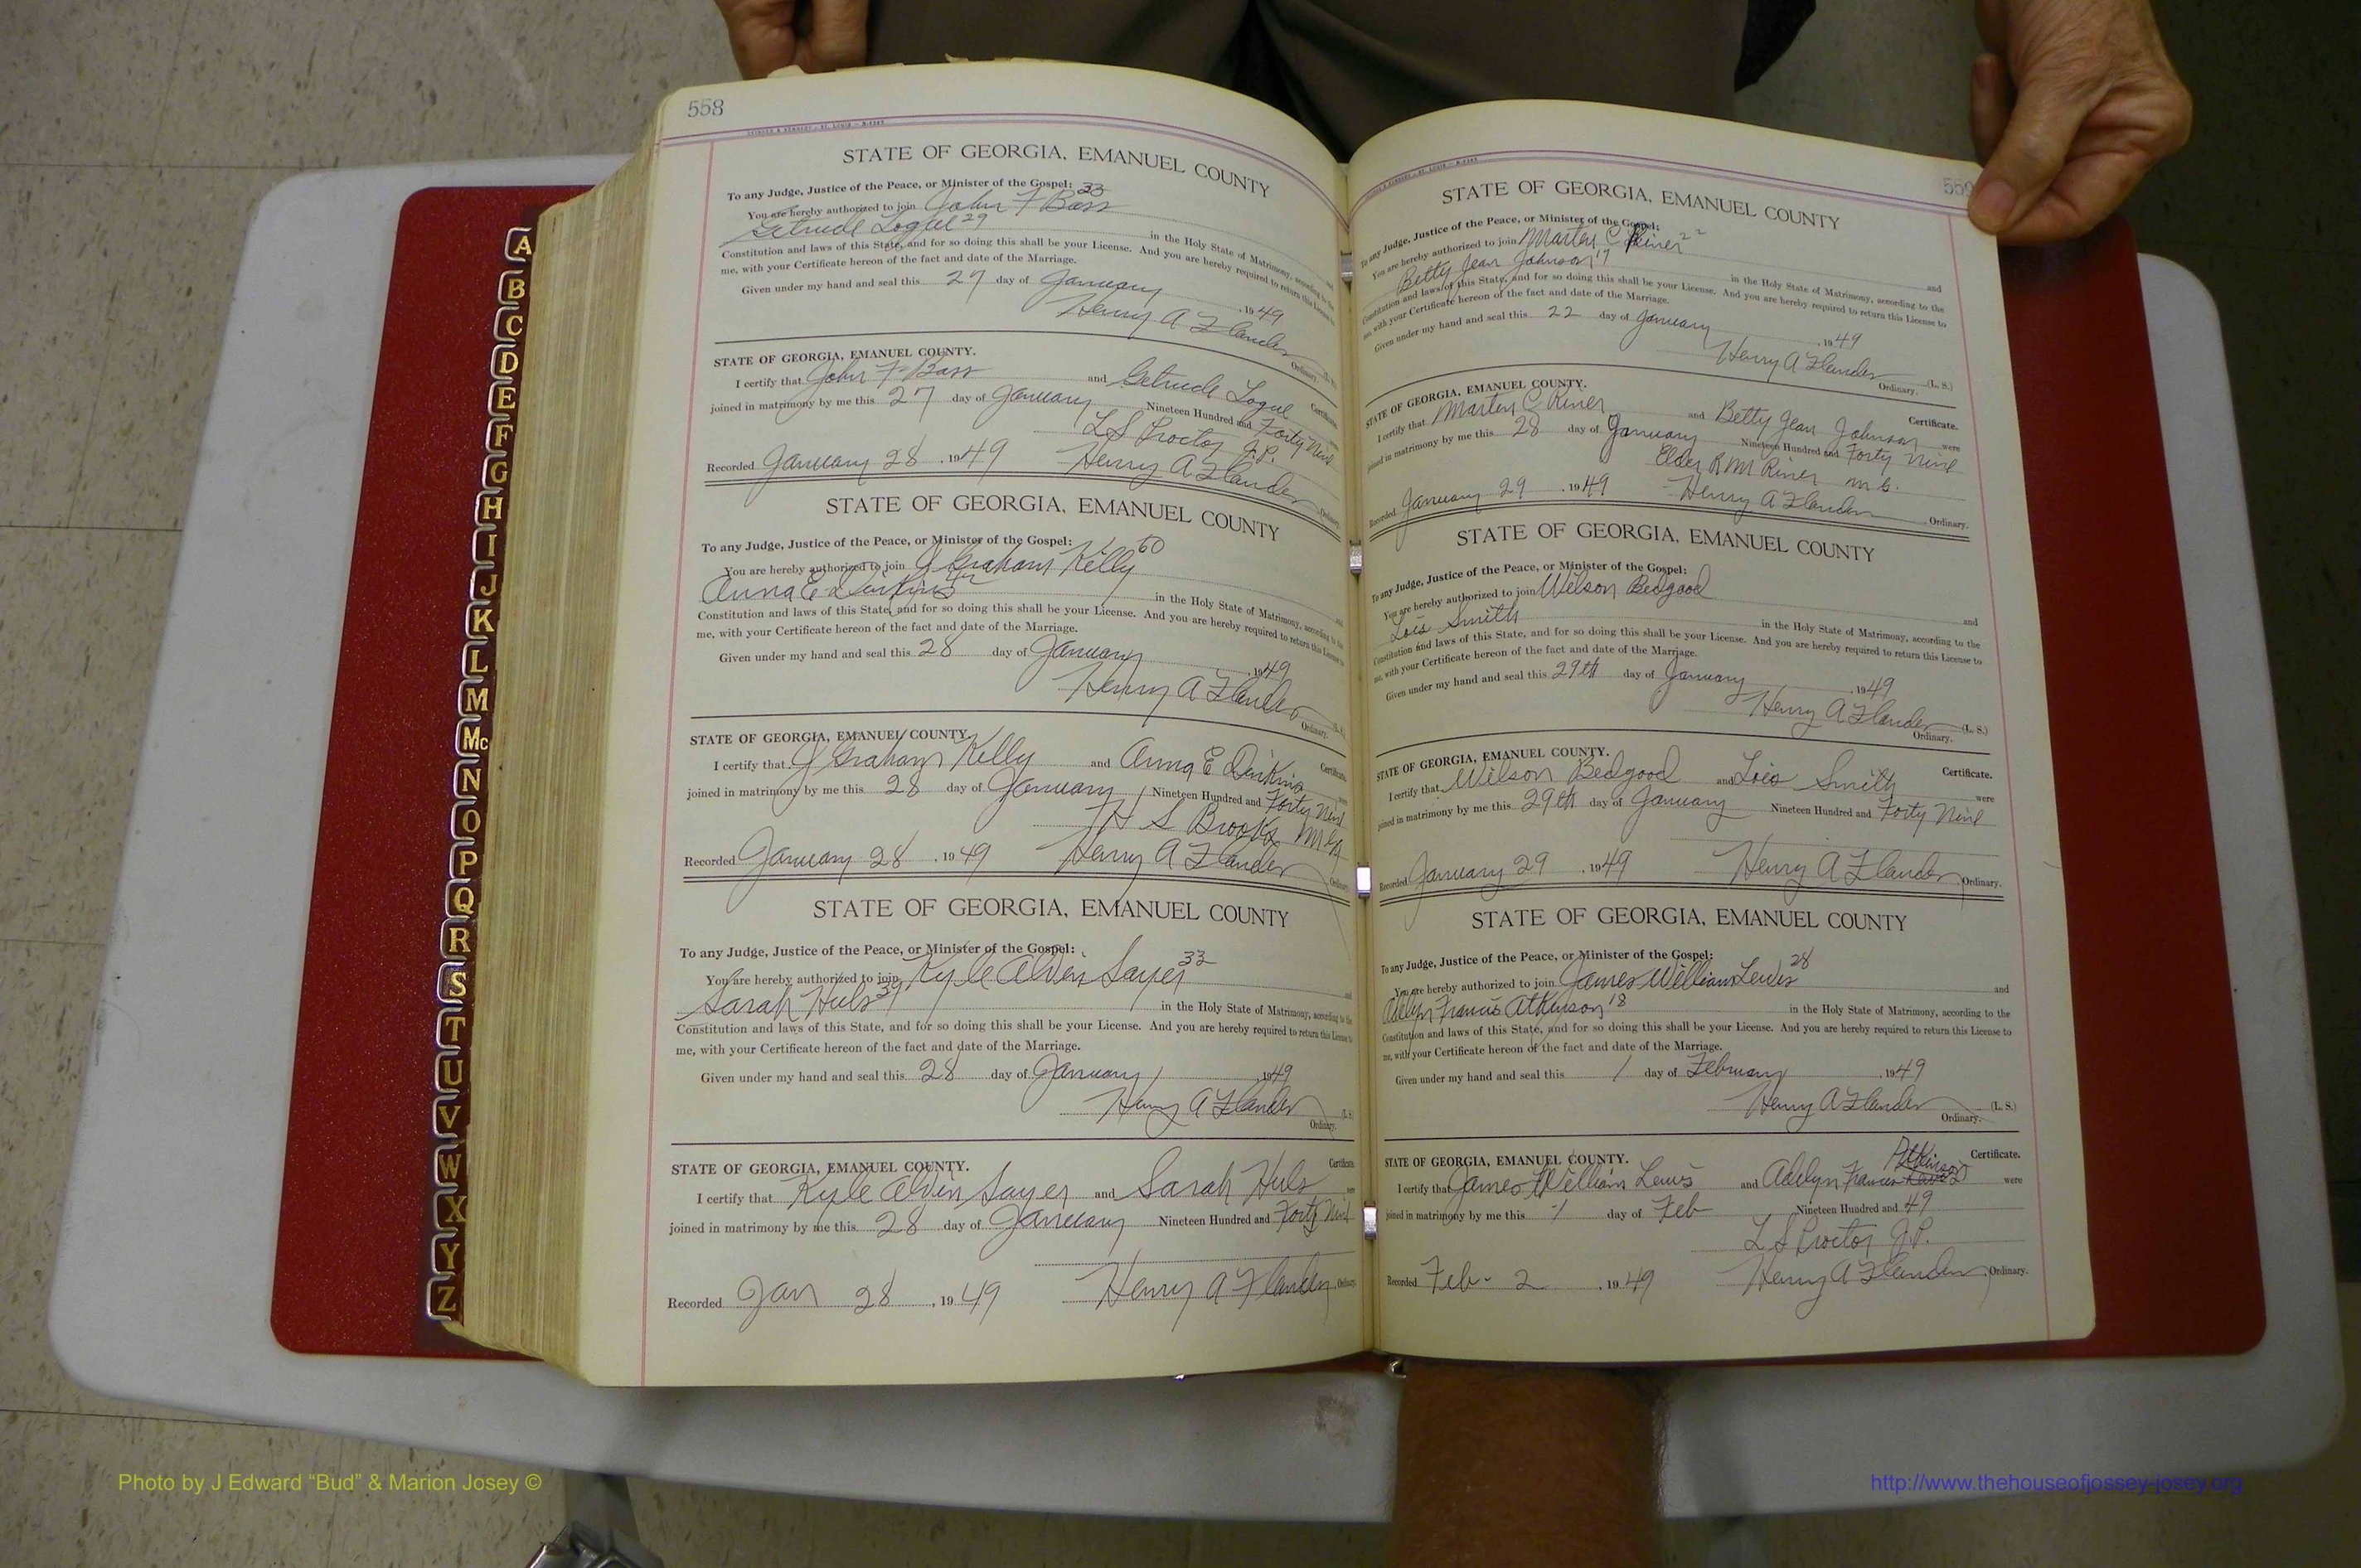 558
STATE OF GEORGIA, EMANUEL COUNTY
To any Judge, Justice of the Peace, or Minister of the Gospel: 33
You are hereby authorized to join John F Bass and
Getrude Logue 29 in the Holy State of Matrimony, according to the
Constitution and laws of this State, and for so doing this shall be your License. And you are hereby required to return this License to
me, with your Certificate hereon of the fact and date of the Marriage.
Given under my hand and seal this 27 day of January , 1949
Henry A Flanders (L. S.)
Ordinary.
STATE OF GEORGIA, EMANUEL COUNTY.
Certificate.
I certify that John F Bass and Getrude Logue
joined in matrimony by me this 27 day of January Nineteen Hundred and Forty Nine
L S Proctor J.P.
Recorded January 28 , 1949 Henry A Flanders Ordinary.
STATE OF GEORGIA, EMANUEL COUNTY
To any Judge, Justice of the Peace, or Minister of the Gospel:
You are hereby authorized to join J Graham Kelly 60 and
Anna E Durkins in the Holy State of Matrimony, according to
Constitution and laws of this State, and for so doing this shall be your License. And you are hereby required to return this License to
me, with your Certificate hereon of the fact and date of the Marriage.
Given under my hand and seal this 28 day of January , 1949
Henry A Flanders (L. S.)
Ordinary.
STATE OF GEORGIA, EMANUEL COUNTY.
Certificate.
I certify that J Graham Kelly and Anna E Durkins were
joined in matrimony by me this 28 day of January Nineteen Hundred and Forty Nine
H S Brooks
Recorded January 28 , 1949 Henry A Flanders Ordinary.
STATE OF GEORGIA, EMANUEL COUNTY
To any Judge, Justice of the Peace, or Minister of the Gospel:
You are hereby authorized to join Kyle Alvin Sayer 33 and
Sarah Huls 39 in the Holy State of Matrimony, according to the
Constitution and laws of this State, and for so doing this shall be your License. And you are hereby required to return this License to
me, with your Certificate hereon of the fact and date of the Marriage.
Given under my hand and seal this 28 day of January , 1949
Henry A Flanders (L. S.)
Ordinary.
STATE OF GEORGIA, EMANUEL COUNTY.
Certificate.
I certify that Kyle Alvin Sayer and Sarah Huls were
joined in matrimony by me this 28 day of January Nineteen Hundred and Forty Nine
Recorded Jan 28 , 1949 Henry A Flanders Ordinary.
559
STATE OF GEORGIA, EMANUEL COUNTY
To any Judge, Justice of the Peace, or Minister of the Gospel:
You are hereby authorized to join Marten C Riner 22 and
Betty Jean Johnson 17 in the Holy State of Matrimony, according to the
Constitution and laws of this State, and for so doing this shall be your License. And you are hereby required to return this License to
me, with your Certificate hereon of the fact and date of the Marriage.
Given under my hand and seal this 22 day of January , 1949
Henry A Flanders (L. S.)
Ordinary.
STATE OF GEORGIA, EMANUEL COUNTY.
Certificate.
I certify that Marten C Riner and Betty Jean Johnson were
joined in matrimony by me this 28 day of January Nineteen Hundred and Forty Nine
Elder R M Riner M.G.
Recorded January 29 , 1949 Henry A Flanders Ordinary.
STATE OF GEORGIA, EMANUEL COUNTY
To any Judge, Justice of the Peace, or Minister of the Gospel:
You are hereby authorized to join Wilson Bedgood and
Lois Smith in the Holy State of Matrimony, according to the
Constitution and laws of this State, and for so doing this shall be your License. And you are hereby required to return this License to
me, with your Certificate hereon of the fact and date of the Marriage.
Given under my hand and seal this 29th day of January , 1949
Henry A Flanders (L. S.)
Ordinary.
STATE OF GEORGIA, EMANUEL COUNTY.
Certificate.
I certify that Wilson Bedgood and Lois Smith were
joined in matrimony by me this 29th day of January Nineteen Hundred and Forty Nine
Recorded January 29 , 1949 Henry A Flanders Ordinary.
STATE OF GEORGIA, EMANUEL COUNTY
To any Judge, Justice of the Peace, or Minister of the Gospel:
You are hereby authorized to join James William Lewis 28 and
Adelyn Francis Atkinson 18 in the Holy State of Matrimony, according to the
Constitution and laws of this State, and for so doing this shall be your License. And you are hereby required to return this License to
me, with your Certificate hereon of the fact and date of the Marriage.
Given under my hand and seal this 1 day of February , 1949
Henry A Flanders (L. S.)
Ordinary.
STATE OF GEORGIA, EMANUEL COUNTY.
Atkinson Certificate.
I certify that James William Lewis and Adelyn Francis were
joined in matrimony by me this 1 day of Feb Nineteen Hundred and 49
L S Proctor J.P.
Recorded Feb - 2 , 1949 Henry A Flanders Ordinary.
A
B
C
D
E
F
G
H
I
J
K
L
M
Mc
N
O
P
Q
R
S
T
U
V
W
X
Y
Z
Photo by J Edward “Bud” & Marion Josey ©
http://www.thehouseofjossey-josey.org